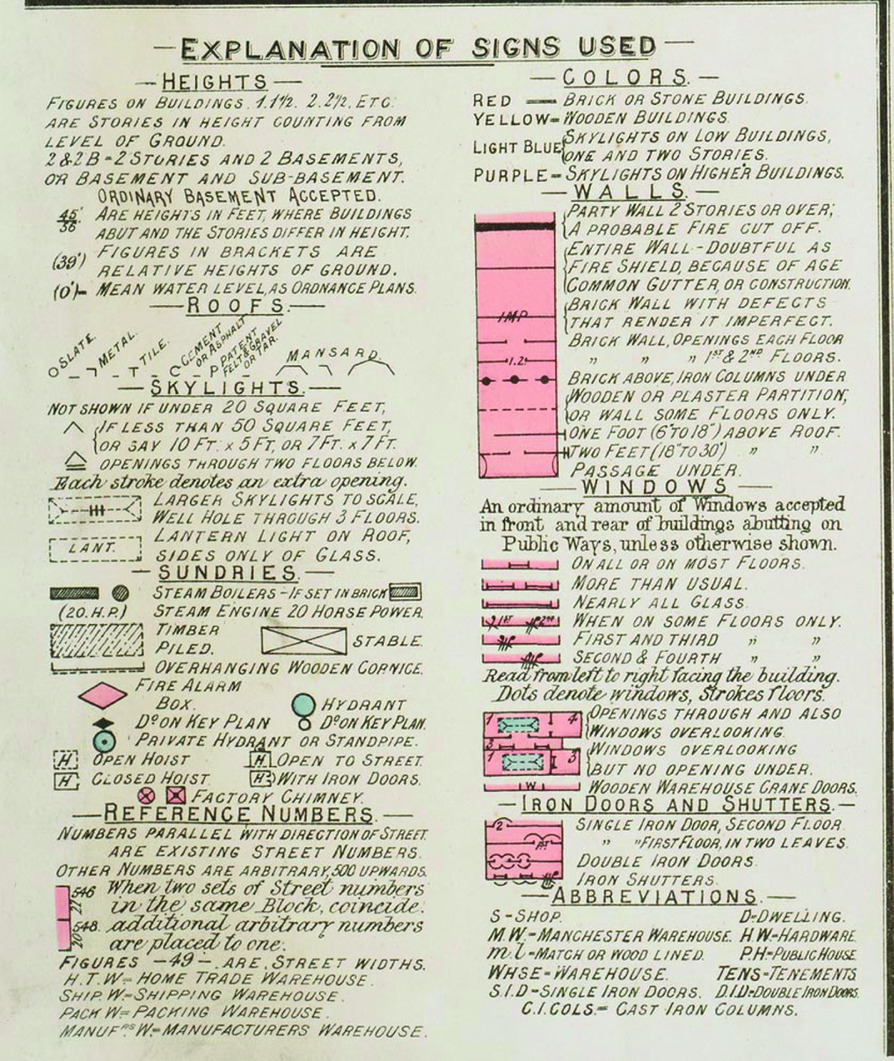 EXPLANATION OF SIGNS USED
HEIGHTS
FIGURES ON BUILDINGS. 1. 1½. 2. 2½. ETC.
ARE STORIES IN HEIGHT COUNTING FROM
LEVEL OF GROUND.
2 & 2 B = 2 STORIES AND 2 BASEMENTS,
OR BASEMENT AND SUB-BASEMENT.
ORDINARY BASEMENT ACCEPTED.
45'/36 ARE HEIGHTS IN FEET, WHERE BUILDINGS
ABUT AND THE STORIES DIFFER IN HEIGHT.
(39') FIGURES IN BRACKETS ARE
RELATIVE HEIGHTS OF GROUND.
(0')- MEAN WATER LEVEL, AS ORDNANCE PLANS.
ROOFS
O SLATE. METAL. T TILE. C CEMENT OR ASPHALT P PATENT FELT & GRAVEL OR TAR. MANSARD.
SKYLIGHTS.
NOT SHOWN IF UNDER 20 SQUARE FEET,
IF LESS THAN 50 SQUARE FEET,
OR SAY 10 FT. x 5 FT, OR 7 FT. x 7 FT.
OPENINGS THROUGH TWO FLOORS BELOW.
Each stroke denotes an extra opening.
LARGER SKYLIGHTS TO SCALE,
WELL HOLE THROUGH 3 FLOORS.
LANT. LANTERN LIGHT ON ROOF,
SIDES ONLY OF GLASS.
SUNDRIES.
STEAM BOILERS - IF SET IN BRICK
(20. H.P.) STEAM ENGINE 20 HORSE POWER.
TIMBER
PILED. STABLE.
OVERHANGING WOODEN CORNICE.
FIRE ALARM
BOX. HYDRANT
Do ON KEY PLAN Do ON KEY PLAN.
PRIVATE HYDRANT OR STANDPIPE.
H OPEN HOIST H OPEN TO STREET.
H CLOSED HOIST H WITH IRON DOORS.
FACTORY CHIMNEY.
REFERENCE NUMBERS.
NUMBERS PARALLEL WITH DIRECTION OF STREET
ARE EXISTING STREET NUMBERS.
OTHER NUMBERS ARE ARBITRARY, 500 UPWARDS.
546 When two sets of Street numbers
22 in the same Block, coincide.
548. additional arbitrary numbers
20 are placed to one.
FIGURES -49- ARE STREET WIDTHS.
H.T.W = HOME TRADE WAREHOUSE.
SHIP. W = SHIPPING WAREHOUSE.
PACK W = PACKING WAREHOUSE.
MANUFRS W = MANUFACTURERS WAREHOUSE.
COLORS.
RED BRICK OR STONE BUILDINGS.
YELLOW = WOODEN BUILDINGS.
LIGHT BLUE SKYLIGHTS ON LOW BUILDINGS,
ONE AND TWO STORIES.
PURPLE = SKYLIGHTS ON HIGHER BUILDINGS.
WALLS.
PARTY WALL 2 STORIES OR OVER,
A PROBABLE FIRE CUT OFF.
ENTIRE WALL - DOUBTFUL AS
FIRE SHIELD, BECAUSE OF AGE
COMMON GUTTER, OR CONSTRUCTION.
BRICK WALL WITH DEFECTS
IMP THAT RENDER IT IMPERFECT.
BRICK WALL, OPENINGS EACH FLOOR
1.2. „ „ „ 1ST & 2ND FLOORS.
BRICK ABOVE, IRON COLUMNS UNDER
WOODEN OR PLASTER PARTITION,
OR WALL SOME FLOORS ONLY.
ONE FOOT (6" TO 18") ABOVE ROOF.
TWO FEET (18" TO 30") „ „.
PASSAGE UNDER.
WINDOWS
An ordinary amount of Windows accepted
in front and rear of buildings abutting on
Public Ways, unless otherwise shown.
ON ALL OR ON MOST FLOORS.
MORE THAN USUAL.
NEARLY ALL GLASS
1ST 2ND WHEN ON SOME FLOORS ONLY.
FIRST AND THIRD „ „
SECOND & FOURTH „ „
Read from left to right facing the building.
Dots denote windows, Strokes floors.
1 4 OPENINGS THROUGH AND ALSO
WINDOWS OVERLOOKING.
3 WINDOWS OVERLOOKING
1 3 BUT NO OPENING UNDER.
W WOODEN WAREHOUSE CRANE DOORS.
IRON DOORS AND SHUTTERS.
2 SINGLE IRON DOOR, SECOND FLOOR.
1ST „ „ FIRST FLOOR, IN TWO LEAVES.
DOUBLE IRON DOORS
IRON SHUTTERS.
ABBREVIATIONS.
S = SHOP. D = DWELLING.
M.W. = MANCHESTER WAREHOUSE. H.W = HARDWARE
m.l = MATCH OR WOOD LINED. P.H = PUBLIC HOUSE
WHSE = WAREHOUSE. TENS = TENEMENTS
S.I.D = SINGLE IRON DOORS. D.I.D = DOUBLE IRON DOORS.
C.I.COLS. = CAST IRON COLUMNS.